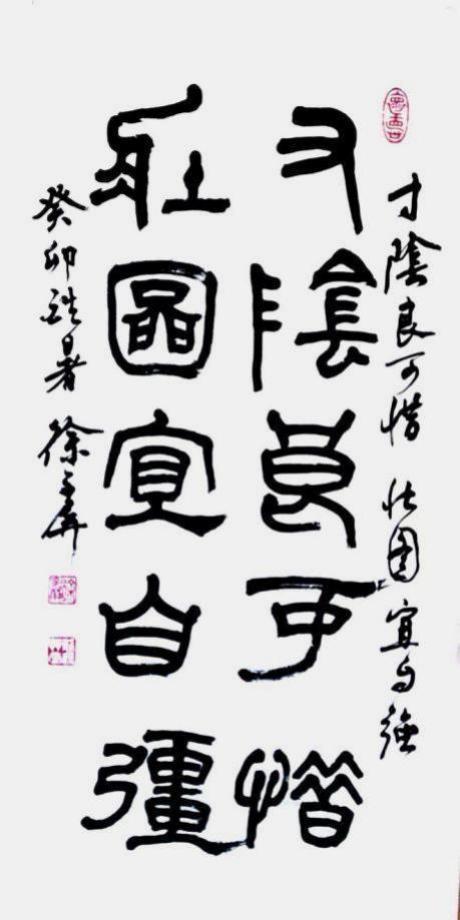 寸陰良可惜 壯圖宜自強
寸陰良可惜
壯圖宜自彊
癸卯暑 徐